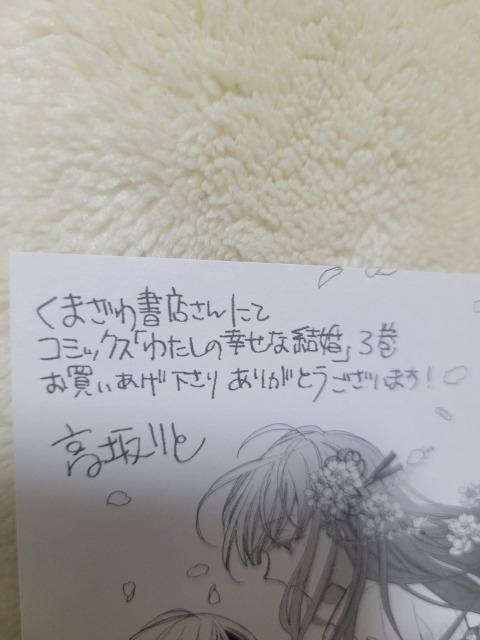 くまざわ書店さんにて
コミックス「わたしの幸せな結婚」3巻
お買いあげ下さりありがとうございます!
高坂りと